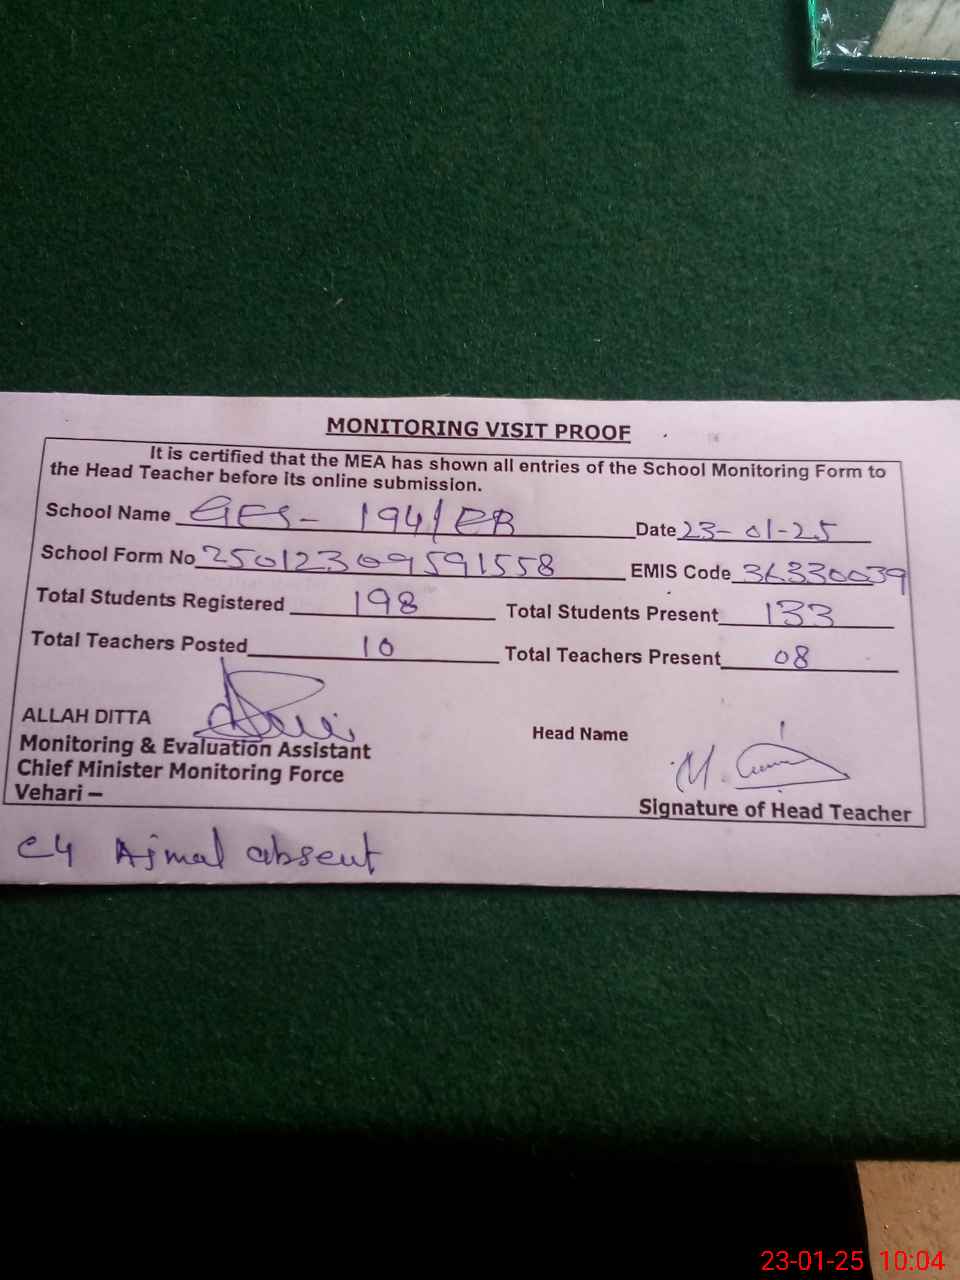 MONITORING VISIT PROOF
It is certified that the MEA has shown all entries of the School Monitoring Form to
the Head Teacher before its online submission.
School Name GES- 194/EB Date 23-01-25
School Form No 25012309591558 EMIS Code 36330039
Total Students Registered 198 Total Students Present 133
Total Teachers Posted 10 Total Teachers Present 08
ALLAH DITTA
Monitoring & Evaluation Assistant Head Name
Chief Minister Monitoring Force
Vehari – Signature of Head Teacher
C4 Ajmal absent
23-01-25 10:04